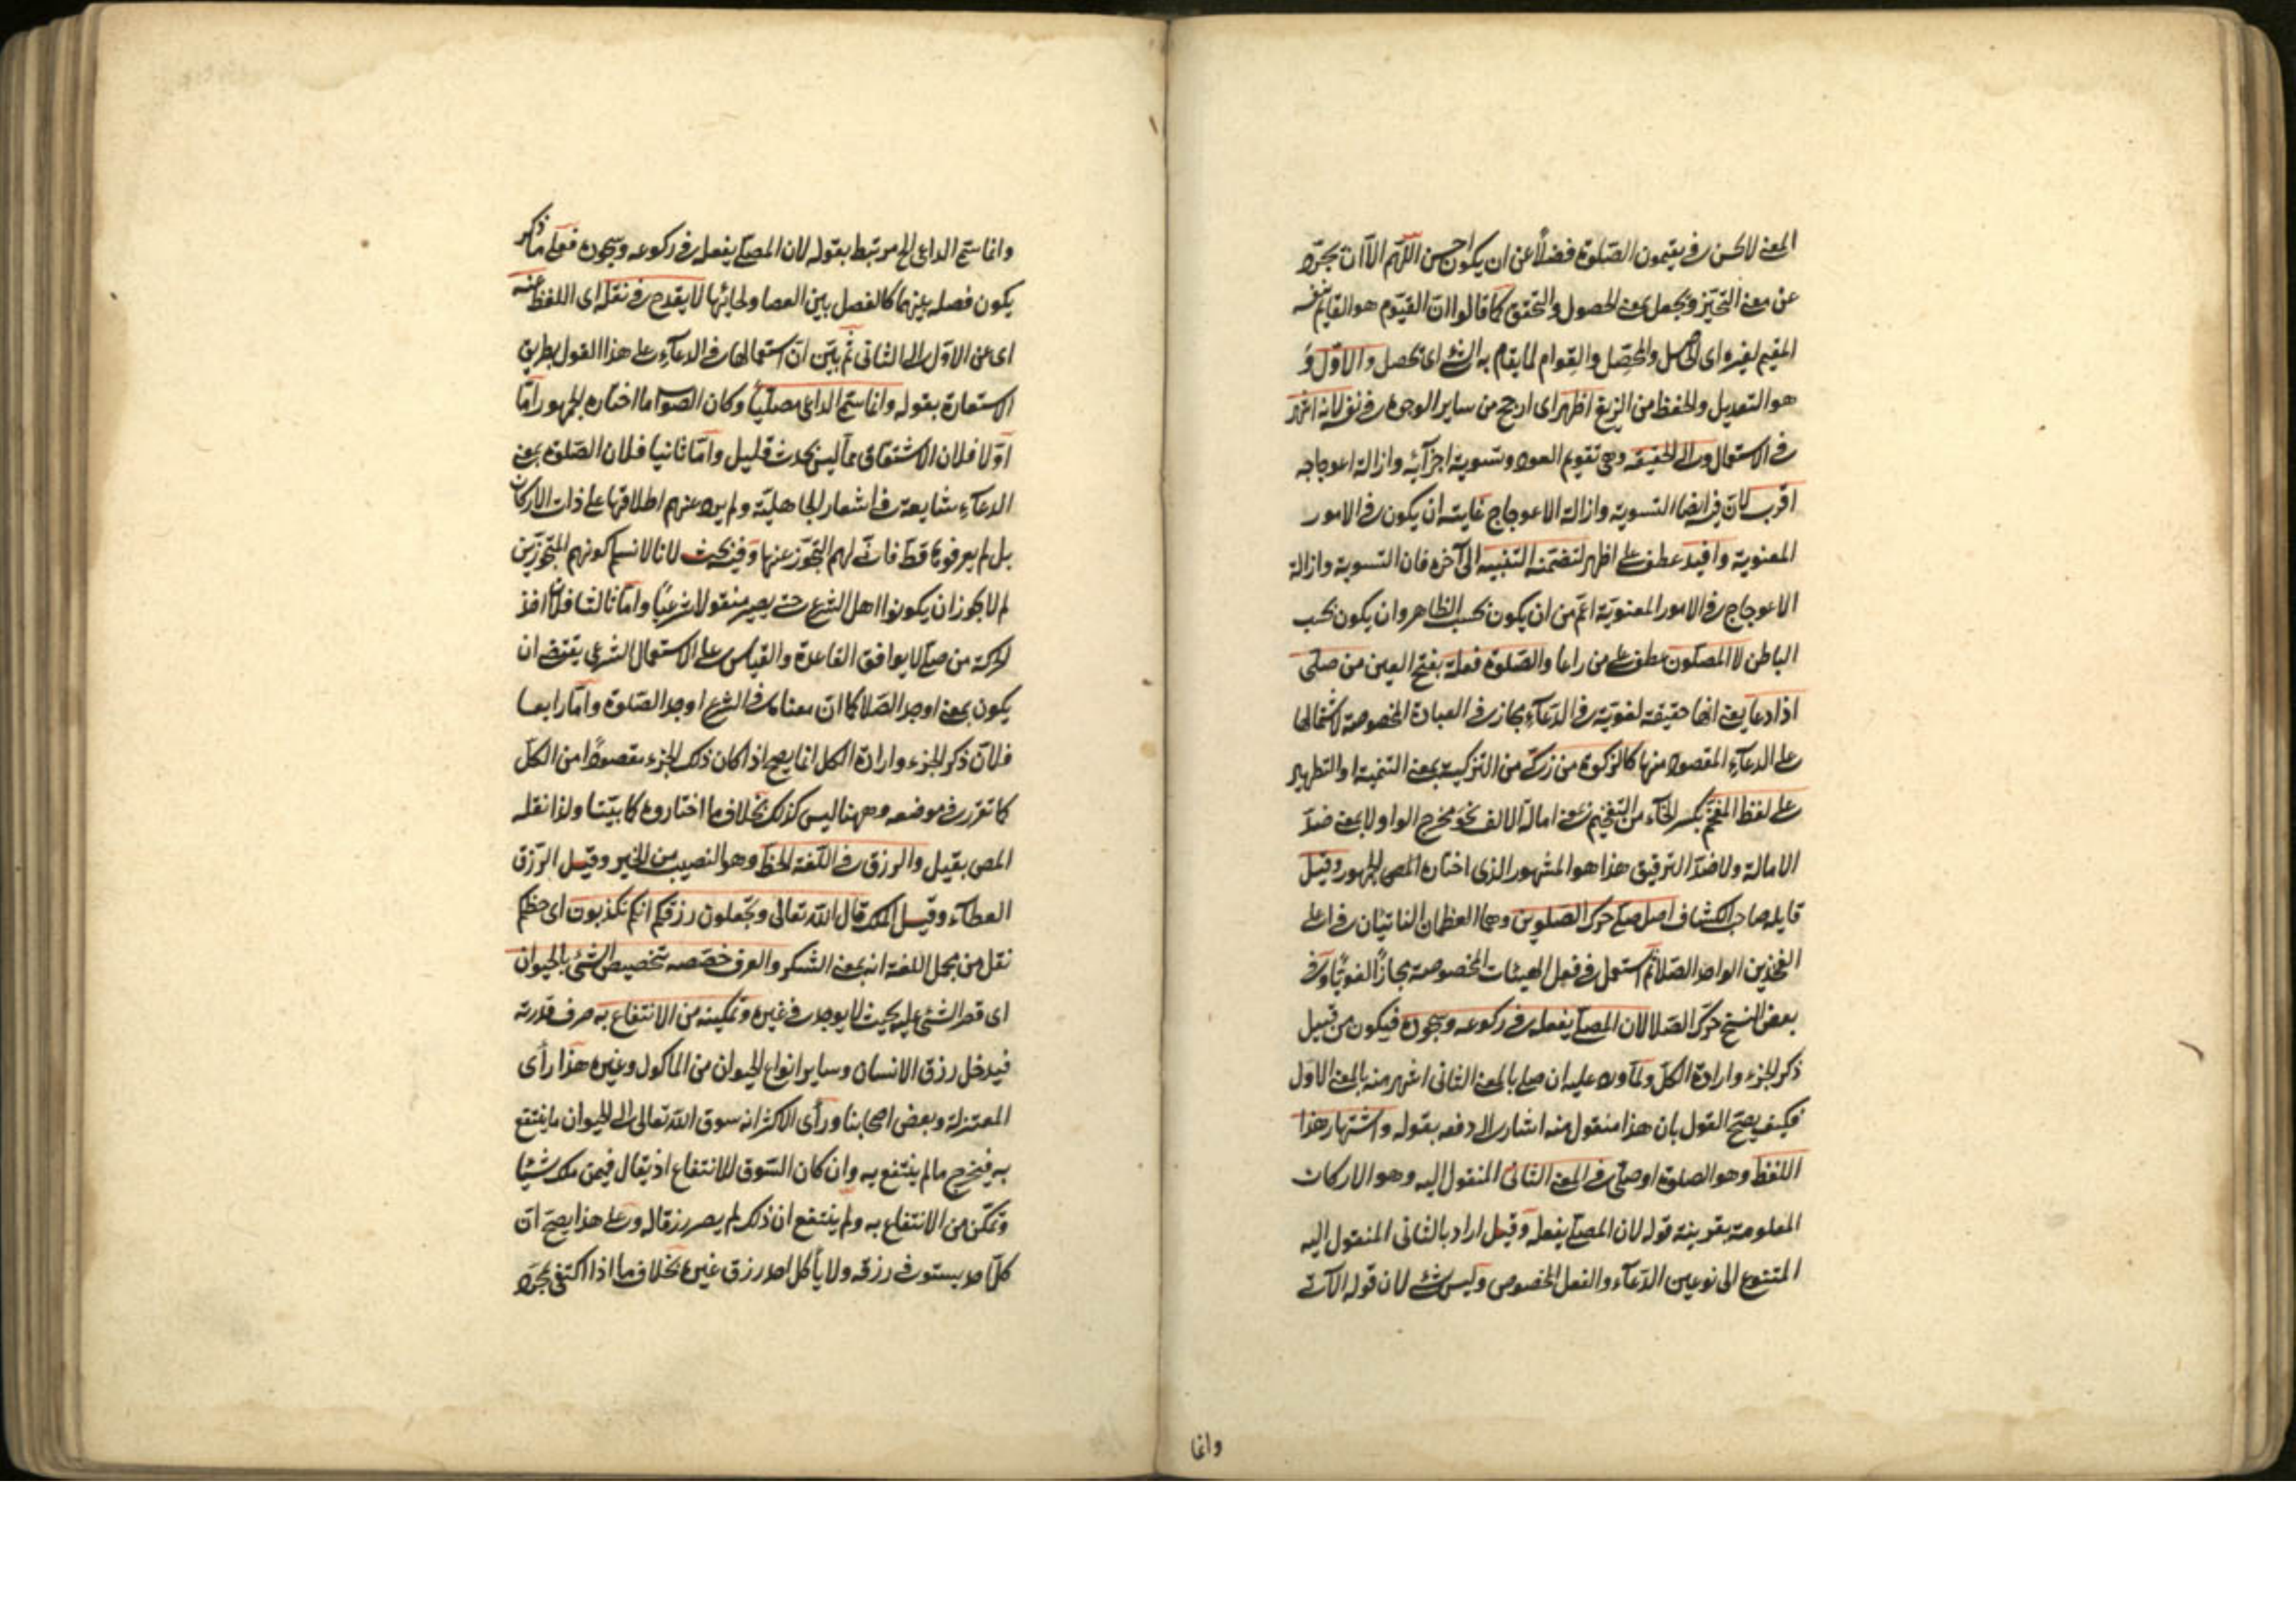 المعنى لاكسن في يقيمون الصلوة فضلاً عن ان يكون احسن اللهم الا ان تجرد
عن معنى التحيز وتجعل بمعنى الحصول والتحقق كما قالوا ان القيوم هو القايم بنفسه
المقيم لغيره اى الحاصل والمحصل والقوام لما يقام به الشئ اى تحصل والاول و
هو التعديل والحفظ من الزيغ اظهر اى ارجح من ساير الوجوه في نفر لانه اشهر
في الاستعمال والى الحقيقة وهي تقويم العود وتسوية اجزآئه وازالة اعوجاجه
اقرب لان فيه ايضا التسوية وازالة الاعوجاج غايته ان يكون في الامور
المعنوية وافيد عطف على اظهر لتضمنه التنبيه الى آخره فان التسوية وازالة
الاعوجاج في الامور المعنوية اعم من ان يكون بحسب الظاهر وان يكون بحسب
الباطن لا المصلون عطف على من راعا والصلوة فعلة بفتح العين من صلى
اذا دعا يعنى انها حقيقة لغوية في الدعآء مجاز في العبادة المخصوصة لاشتمالها
على الدعآء المقصود منها كالزكوة من زكى من التزكية بمعنى التنمية او التطهير
على لفظ المفخم بكسر الخآء من التفخيم يعنى امالة الالف نحو مخرج الواو لا بمعنى ضد
الامالة ولا ضد الترقيق هذا هو المشهور الذى اختاره المص والجمهور وقيل
قايله صاحب الكشاف اصل صلى حرك الصلوين وهما العظمان الناتيان في اعلى
الفخذين الواحد الصلا ثم استعمل في فعل الهيئات المخصوصة مجازاً لغوياً وفي
بعض النسخ حرك الصلا لان المصلى يفعله في ركوعه وسجوده فيكون من قبيل
ذكر الجزء وارادة الكل ولما ورد عليه ان صلى بالمعنى الثانى اشهر منه بالمعنى الاول
فكيف يصح القول بان هذا منقول منه اشار الى دفعه بقوله واشتهار هذا
اللفظ وهو الصلوة او صلى في المعنى الثانى المنقول اليه وهو الاركان
المعلومة بقرينة قوله لان المصلى يفعله وقيل اراد بالثانى المنقول اليه
المتنوع الى نوعين الدعآء والفعل المخصوص وليس بشئ لان قوله الآتى
وانما
وانما سمى الداعى الخ مرتبط بقوله لان المصلى يفعله في ركوعه وسجوده فعلى ما ذكر
يكون فصله بينهما كالفصل بين العصا ولحائها لا يقدح في نقله اى اللفظ عنه
اى عن الاول الى الثانى ثم بين ان استعمالها في الدعآء على هذا القول بطريق
الاستعارة بقوله وانما سمى الداعى مصلياً وكان الصواب ما اختاره الجمهور اما
اولا فلان الاشتقاق مما ليس بحدث قليل واما ثانيا فلان الصلوة بمعنى
الدعآء شايعة في اشعار الجاهلية ولم يرد عنهم اطلاقها على ذات الاركان
بل لم يعرفوها قط فانى لهم التجوز عنها وفيه بحث لانا لا نسلم كونهم المتجوزين
لم لا يجوز ان يكونوا اهل الشرع حتى يصير منقولا شرعياً واما ثالثا فلان اخذ
الحركة من صلى لا يوافق القاعدة والقياس على الاستعمال الشرعى يقتضى ان
يكون بمعنى اوجد الصلا كما ان معناه في الشرع اوجد الصلوة واما رابعا
فلان ذكر الجزء وارادة الكل انما يصح اذا كان ذلك الجزء مقصوداً من الكل
كما تقرر في موضعه وههنا ليس كذلك بخلاف ما اختاروه كما بيّنا ولذا نقله
المص بقيل والرزق في اللغة الحظ وهو النصيب من الخير وقيل الرزق
العطآء وقيل الملك قال الله تعالى وتجعلون رزقكم انكم تكذبون اى حظكم
نقل من مجمل اللغة انه بمعنى الشكر والعرف خصصه بتخصيص الشئ بالحيوان
اى قصر الشئ عليه بحيث لا يوجد في غيره وتمكينه من الانتفاع به صرف قدرته
فيدخل رزق الانسان وساير انواع الحيوان من الماكول وغيره هذا رأى
المعتزلة وبعض اصحابنا ورأى الاكثر انه سوق الله تعالى الى الحيوان ما ينتفع
به فيخرج ما لم ينتفع به وان كان السوق للانتفاع اذ يقال فيمن ملك شيئا
وتمكن من الانتفاع به ولم ينتفع ان ذلك لم يصر رزقا له وعلى هذا يصح ان
كل احد يستوفى رزقه ولا يأكل احد رزق غيره بخلاف ما اذا اكتفى بمجرد